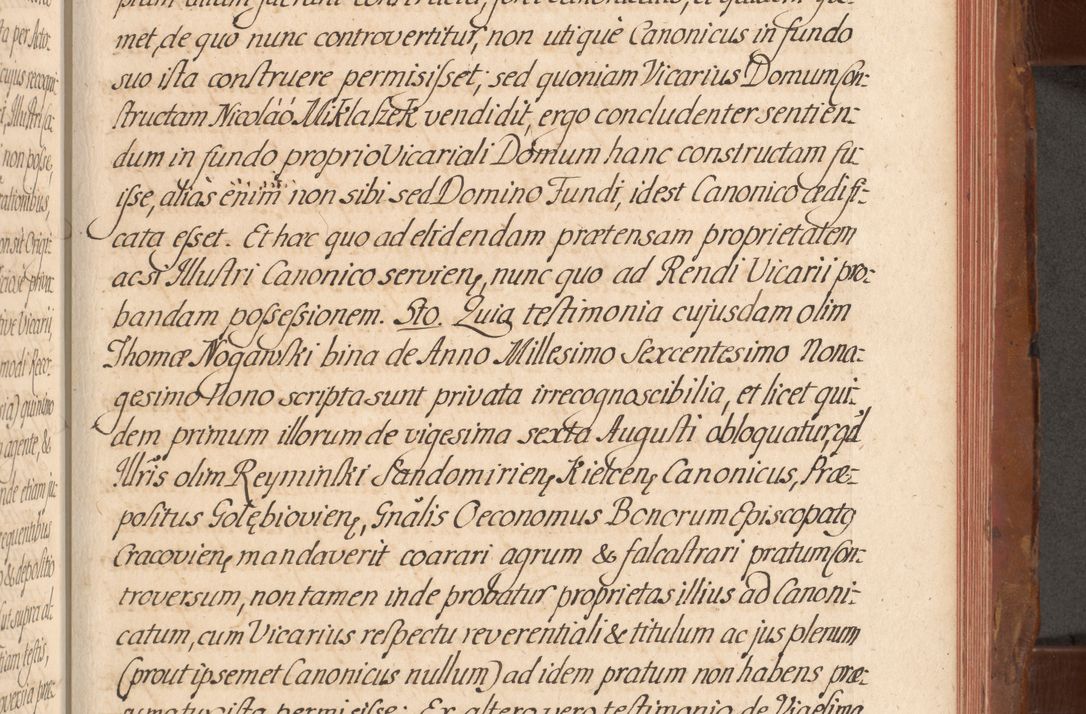 met, de quo nunc controvertitur, non utique Canonicus in fundo
suo ista construere permisisset; sed quoniam Vicarius Domum con-
structam Nicolao Miklaszek vendidit, ergo concludenter sentien-
dum in fundo proprio Vicariali Domum hanc constructam fu-
isse, alias enim non sibi sed Domino Fundi, idest Canonico ædifi-
cata esset. Et hæc quo ad elidendam prætensam proprietatem
acsi Illustri Canonico servien, nunc quo ad Rendi Vicarii pro-
bandam possessionem. Sto. Quia testimonia cujusdam olim
Thomæ Nogawski bina de Anno Millesimo Sexcentesimo Nona-
gesimo Nono scripta sunt privata irrecognoscibilia, et licet qui-
dem primum illorum de vigesima sexta Augusti obloquatur, qd
Illris olim Reyminski Sandomirien, Kielcen, Canonicus, Præ-
positus Gołębiovien, Gnalis Oeconomus Bonorum Episcopatq
Cracovien, mandaverit coarari agrum & falcastrari pratum con-
troversum, non tamen inde probatur proprietas illius ad Canoni-
catum, cum Vicarius respectu reverentiali & titulum ac jus plenum
(prout ipsemet Canonicus nullum) ad idem pratum non habens præ-